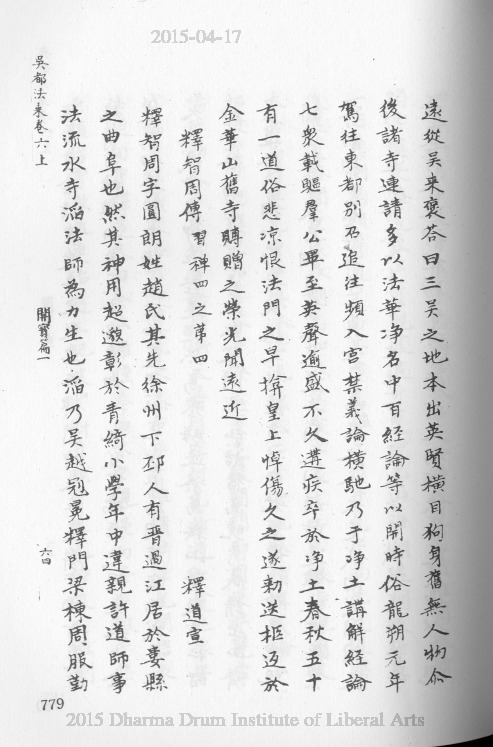 2015-04-17
遠從吳来褒荅曰三吳之地本出英賢橫目狗身舊無人物僉
後諸寺連請多以法華净名中百經論等以開時俗龍朔元年
駕往東都別乃追往頻入宮禁義論橫馳乃于净土講解經論
七衆載驅羣公畢至英聲逾盛不久遘疾卒於净土春秋五十
有一道俗悲凉恨法門之早揜皇上悼傷久之遂勅送柩返於
金華山舊寺賻贈之榮光聞遠近
釋智周傳 習禅四之苐四 釋道宣
釋智周字圓朗姓趙氏其先徐州下邳人有晋過江居於婁縣
之曲阜也然其神用超邈彰於青綺小學年中違親許道師事
法流水寺滔法師為力生也滔乃吴越冠冕釋門梁棟周服勤
吳都法乘卷六上 開寶篇一 六四
779
2015 Dharma Drum Institute of Liberal Arts